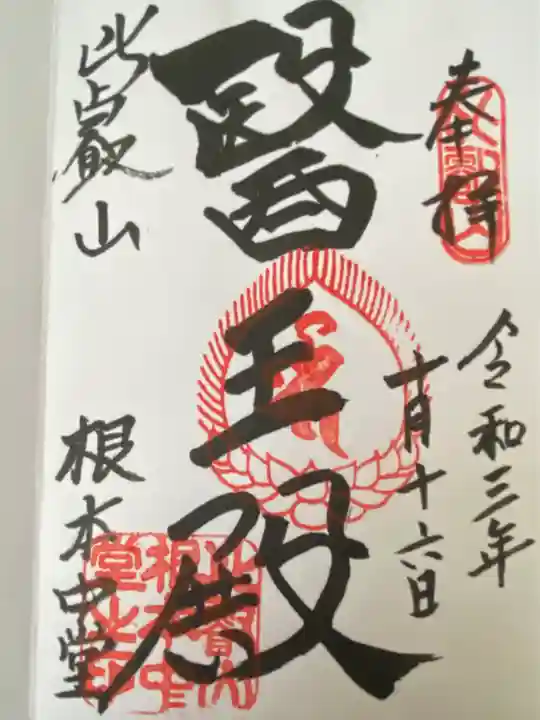 奉拝
令和三年
十月十六日
醫王殿
比叡山
根本中堂
比叡山
根本中
堂之印